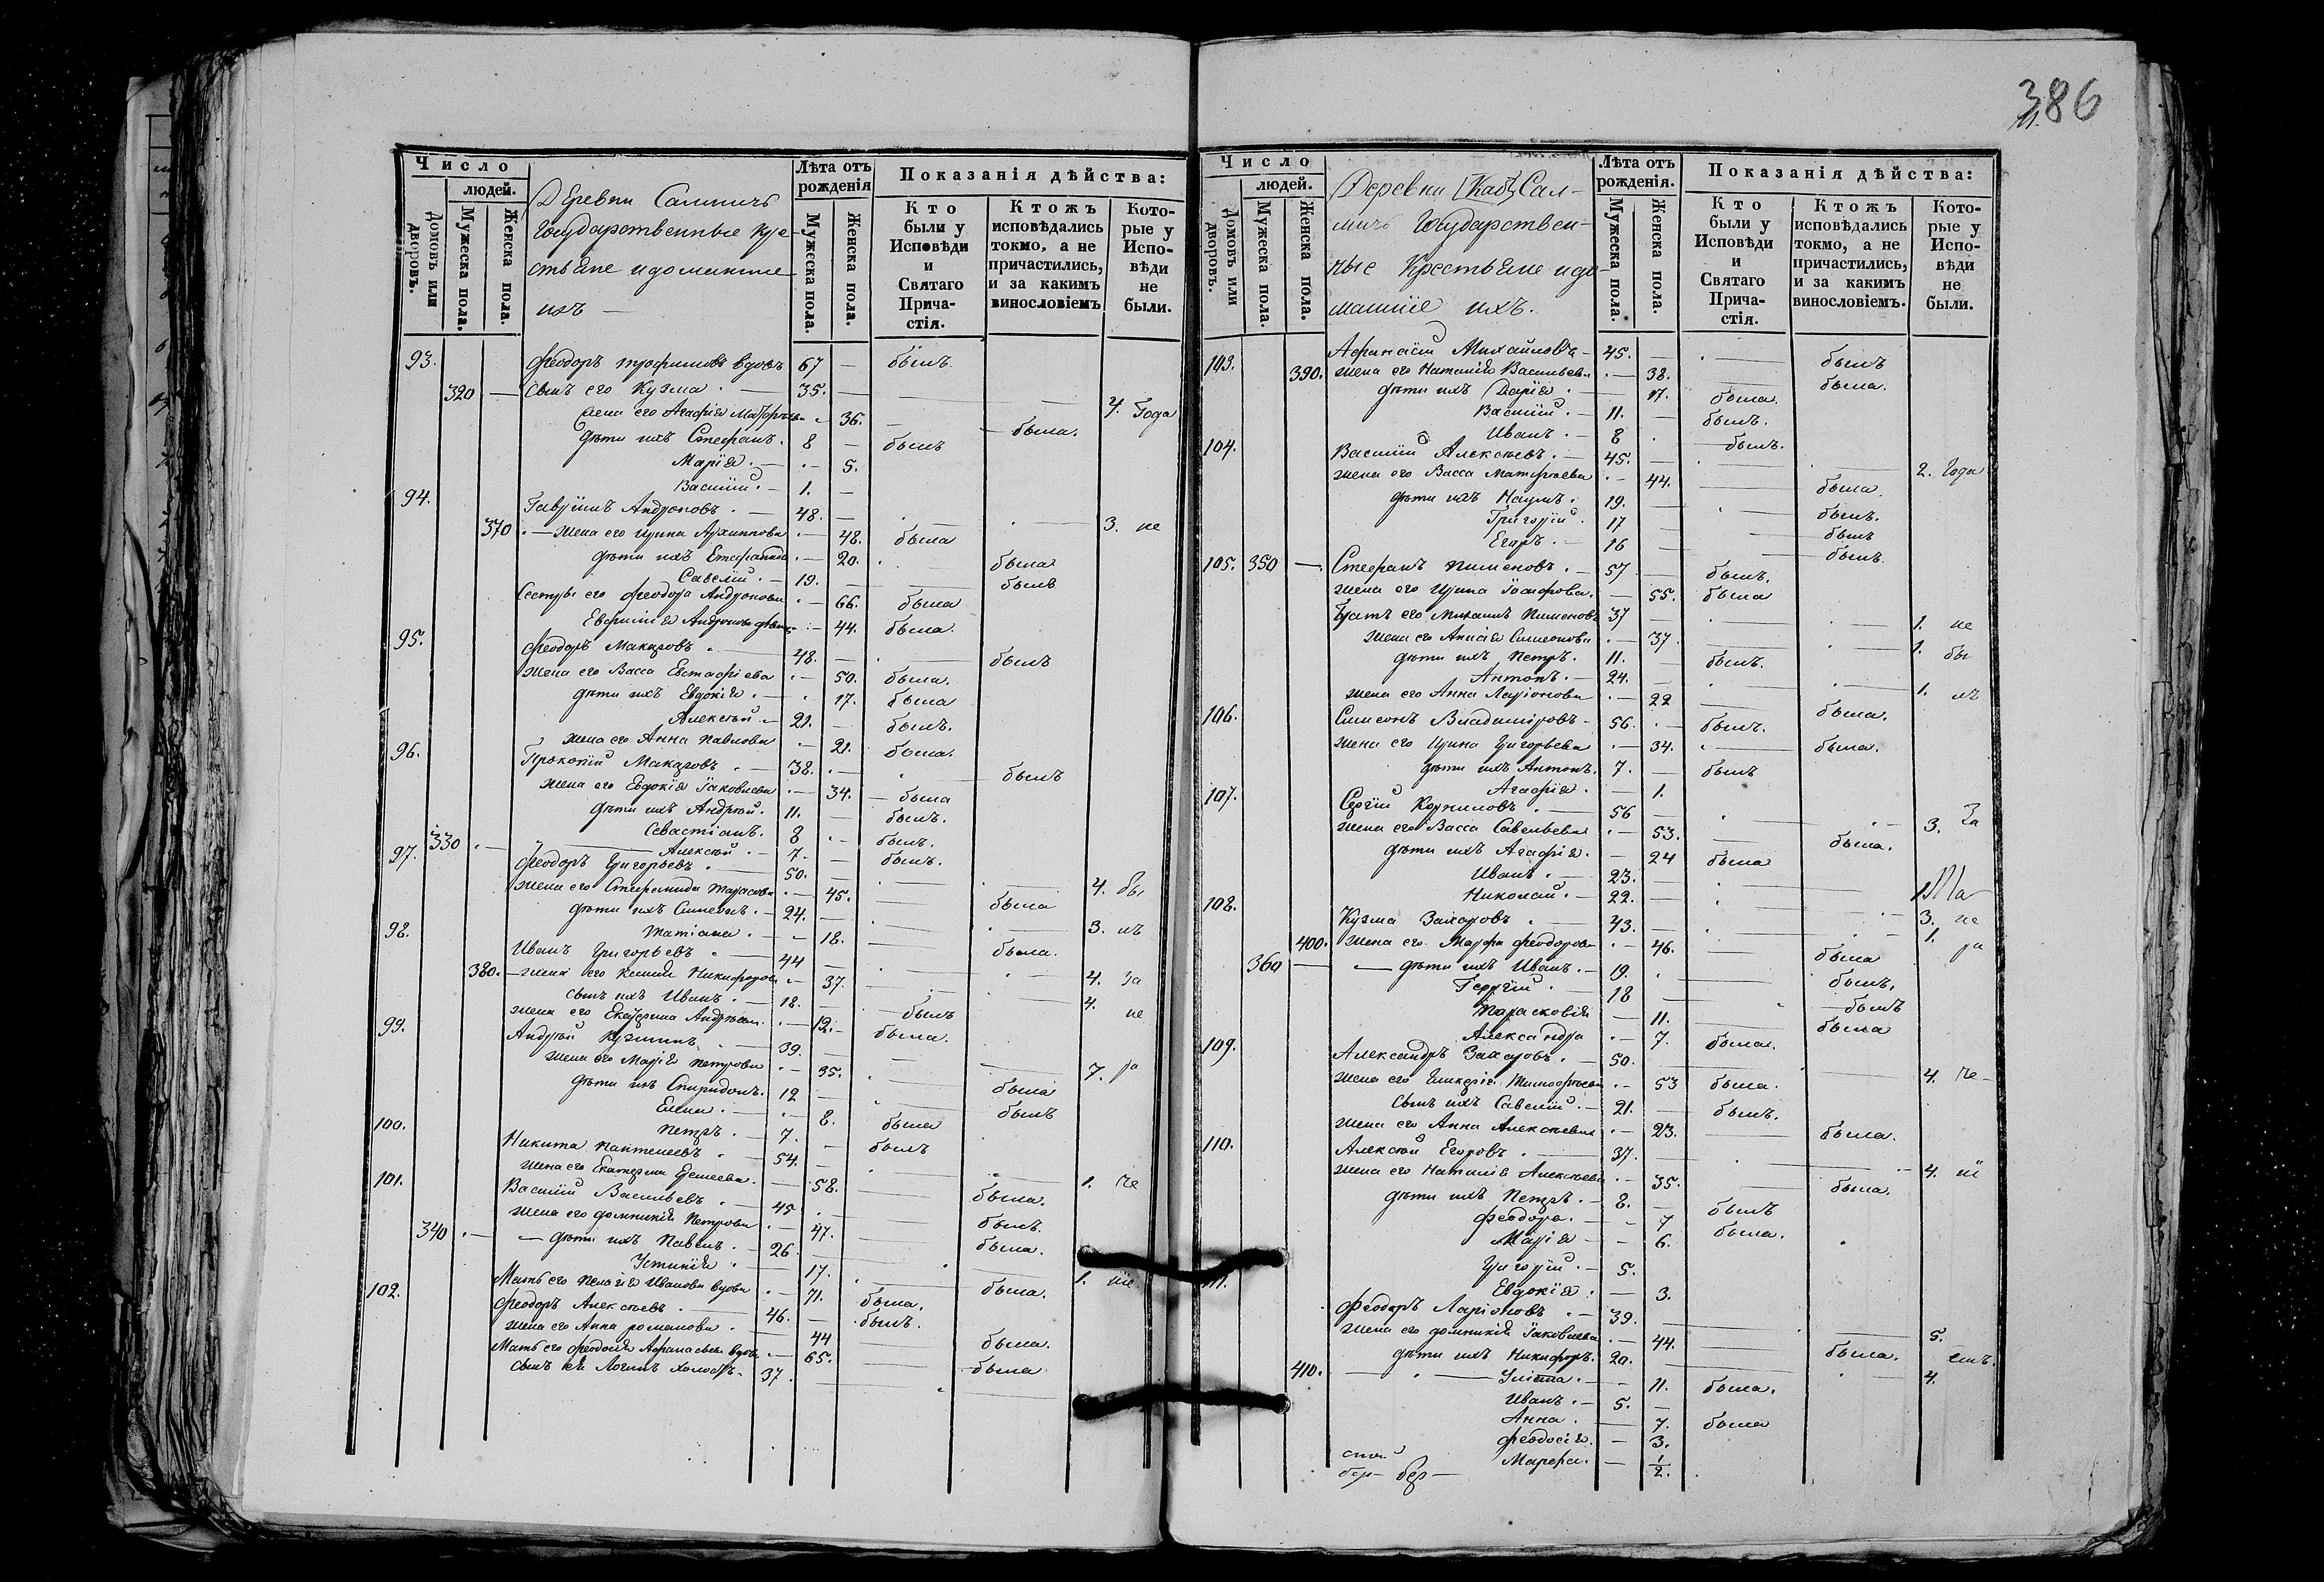 386
Число
людей.
Домовъ или дворовъ.
Мужеска пола.
Женска пола.
Деревни Салмичь
Государственные кре-
стьяне и домашніе
ихъ
Лѣта отъ рожденія
Мужеска пола.
Женска пола.
Показанія дѣйства:
Кто были у Исповѣди и Святаго Причастія.
Ктожъ исповѣдались токмо, а не причастились, и за какимъ винословіемъ
Которые у Исповѣди не были.
93. Феодоръ Трофимовъ вдовъ 67 — былъ.
320 — Сынъ его Кузма 35. — 4. Года
жена его Агафія Матфѣева 36. — была.
дѣти ихъ Стефанъ. 8 — былъ
Марія. — 5.
Василій. — 1. —
94. Гавріилъ Андроновъ. — 48. — 3. не
370 — жена его Ирина Архиппова — 48. была
дѣти ихъ — 20. была
Савелій. — 19. — былъ
Сестры его Феодора Андронова — 66. была
Евфимія Андронова — 44. была.
95. Феодоръ Макаровъ 48. — былъ
жена его Васса Евстафіева — 50. была.
дѣти ихъ Евдокія. — 17. была
Алексѣй. — 21. — былъ.
жена его Анна Павлова — 21. была.
96. Прокопій Макаровъ — 38. — былъ
жена его Евдокія Іаковлева — 34. — была
дѣти ихъ Андрей. 11. — былъ.
Севастіанъ. 8 — былъ.
330 — Алексѣй. — 7. — былъ.
97. Феодоръ Григорьевъ 50. — 4. бы
жена его Стефанида Тарасова — 45. — была
дѣти ихъ Симеонъ. — 24. — 3. лъ
Татіана. — 18. — была.
98. Иванъ Григорьевъ 44 — 4. за
380. — жена его Никифорова — 37. — 4.
сынъ ихъ Иванъ. — 18. — былъ не
жена его Екатерина Андреева. — 19. — была.
99. Андрей Кузминъ 39. — 7. ра
жена его Марія Петрова — 35. — была
дѣти ихъ Спиридонъ. 12 — былъ
Елена. — 8. была
Петръ. — 7. — былъ
100. Никита Пантелеевъ 54. — 1. Не
жена его Екатерина — 58. — была.
101. Василій Васильевъ 45 — былъ.
жена его Домникія Петрова — 47. — была.
340 — дѣти ихъ Павелъ. — 26. — 1. ніе
Устинія — 17. — была.
Мать его Пелагія Иванова вдова — 71. была.
102. Феодоръ Алексѣевъ. — 46. — былъ.
жена его Анна Романова — 44 — была.
Мать его Феодосія Афанасьева вдова — 65. — была
сынъ ея Логинъ холостъ. 37. —
Число
людей.
Домовъ или дворовъ.
Мужеска пола.
Женска пола.
Деревни Сал-
мичь Государствен-
ные Крестьяне и до-
машніе ихъ.
Лѣта отъ рожденія.
Мужеска пола.
Женска пола.
Показанія дѣйства:
Кто были у Исповѣди и Святаго Причастія.
Ктожъ исповѣдались токмо, а не причастились, и за какимъ винословіемъ.
Которые у Исповѣди не были.
103. Афанасій Михайловъ — 45. — былъ
390. жена его Наталія Васильева — 38. — была.
дѣти ихъ Дарія. — 17. была.
Василій. — 11. — былъ.
Иванъ. — 8 — былъ.
104. Василій Алексѣевъ. — 45. — 2. Года
жена его Васса Матфѣева — 44. — была.
дѣти ихъ Наумъ. 19. — былъ.
Григорій. 17 — былъ
Егоръ. — 16 — былъ.
105. 350 — Стефанъ Пименовъ. — 57 — былъ.
жена его Ирина Іосифова. — 55. была
братъ его Михаилъ Пименовъ 37 — 1. не
жена его Анисія Симеонова — 37. — 1. бы
дѣти ихъ Петръ. 11. — былъ.
Антонъ. — 24. — 1. лъ
жена его Анна Ларіонова — 22 — была.
106. Симеонъ Владиміровъ — 56. — былъ.
жена его Ирина Григорьева — 34. — была.
дѣти ихъ Антонъ. 7. — былъ
Агафія. — 1.
107. Сергій Корниловъ — 56 — 3. За
жена его Васса Савельева — 53. — была.
дѣти ихъ Агафія. — 24 была
Иванъ — 23. —
Николай. — 22. —
108. Кузма Захаровъ 43. — 1.
400. жена его Марфа Феодорова — 46. — была
360 — дѣти ихъ Иванъ. — 19. — былъ.
Георгій. 18 — былъ
Парасковія — 11. — была
Александра — 7. была.
109. Александръ Захаровъ. — 50. — 4. Не
жена его Гликерія Тимофѣева — 53 была.
Сынъ ихъ Савелій. — 21. — былъ.
жена его Анна Алексѣева — 23. — была.
110. Алексѣй Егоровъ — 37. — 4. ні
жена его Наталія Алексѣева — 35. — была.
дѣти ихъ Петръ. — 8. — былъ
Феодора. — 7 была.
Марія — 6.
Григорій. — 5.
Евдокія. — 3.
111. Феодоръ Ларіоновъ — 39. — 5.
жена его Домникія Іаковлева — 44. — была. емъ.
дѣти ихъ Никифоръ. 20. — 4.
410. — Уліта. — 11. была.
Иванъ. — 5. —
Анна. — 7. была
Феодосія. — 3.
Марфа. — 1/2.